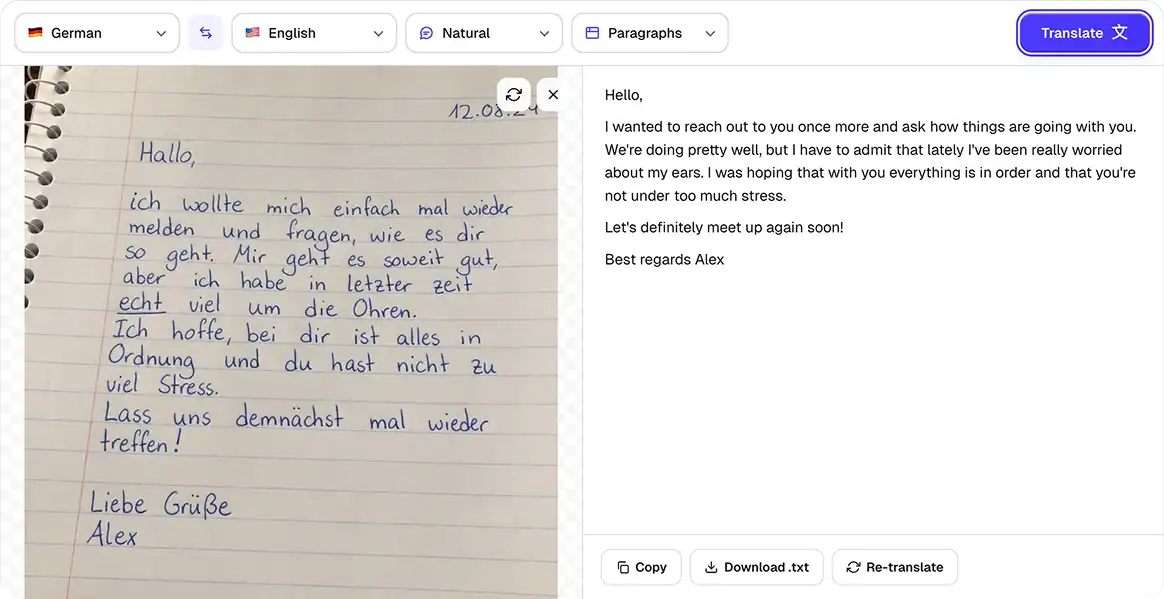 German
English
Natural
Paragraphs
Translate
12.08.24
Hallo,
ich wollte mich einfach mal wieder
melden und fragen, wie es dir
so geht. Mir geht es soweit gut,
aber ich habe in letzter zeit
echt viel um die Ohren.
Ich hoffe, bei dir ist alles in
Ordnung und du hast nicht zu
viel Stress.
Lass uns demnächst mal wieder
treffen!
Liebe Grüße
Alex
Hello,
I wanted to reach out to you once more and ask how things are going with you.
We're doing pretty well, but I have to admit that lately I've been really worried
about my ears. I was hoping that with you everything is in order and that you're
not under too much stress.
Let's definitely meet up again soon!
Best regards Alex
Copy
Download .txt
Re-translate